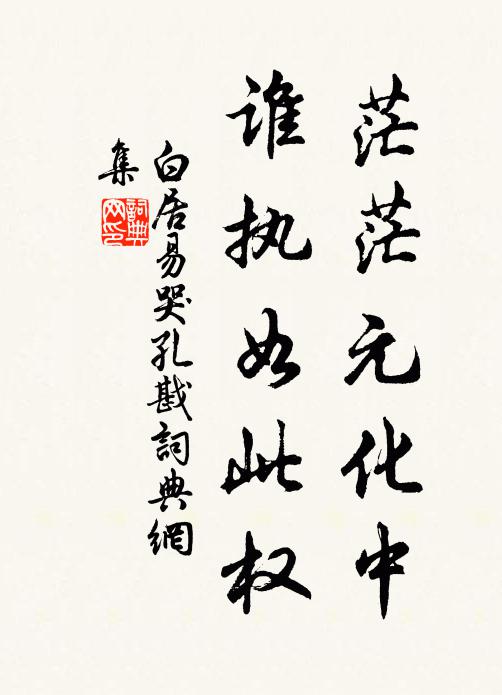 茫茫元化中
谁执如此权
白居易哭孔戡詞典網
集
詞典网印